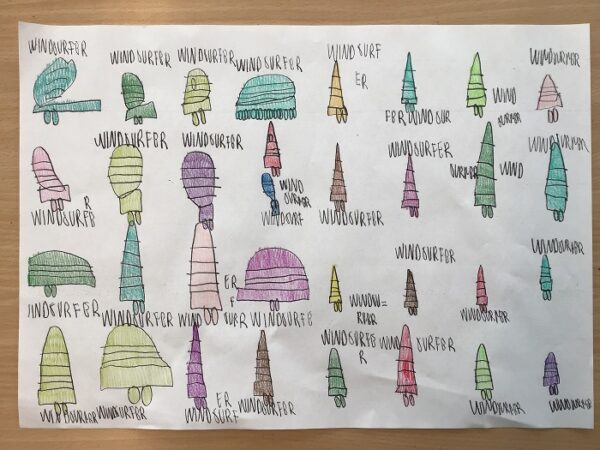 WINDSURFER
WINDSURFER
WINDSURFER
WINDSURFER
WINDSURF
ER
FER WINDSUR
WIND
SURFER
WINDSURFER
WINDSURFER
WINDSURFER
WIND
SURFER
WINDSURFER
WIND
SURFER
WINDSURFER
R
WINDSURFE
WINDSURF
WINDSURFER
WINDSURFER
WINDSURFER
INDSURFER
WINDSURFER
WIND
SURFER
ER
F
WINDSURFE
WINDSURFER
WINDSURFE
R
WIND SURFER
WINDSURFER
WINDSURFER
ER
WINDSURF
WINDSURFER
WINDSURFER
WINDSURFER